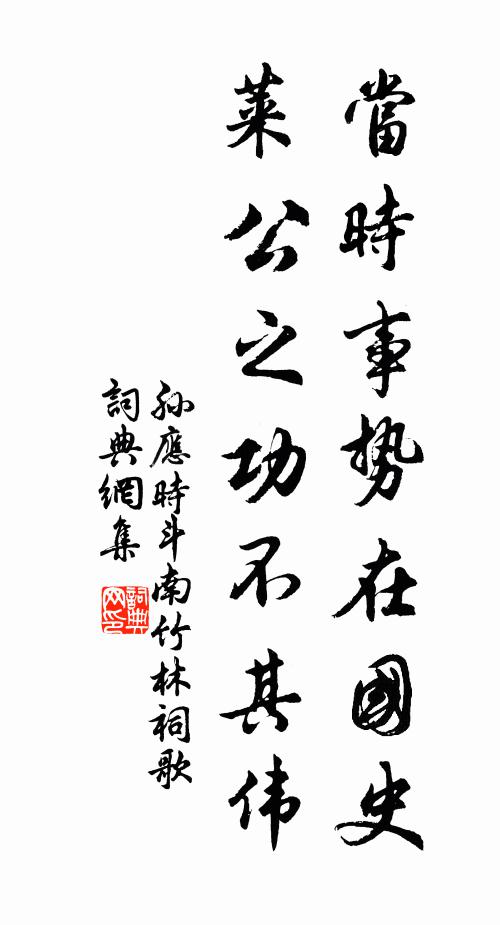 當時事势在國史
莱公之功不其伟
孙應時斗南竹林祠歌
詞典網集
詞典
网印